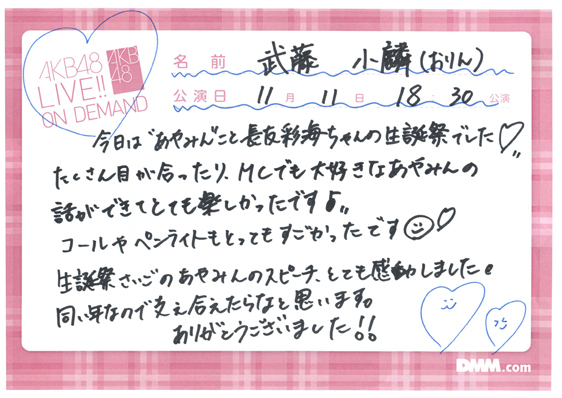 AKB48
LIVE!!
ON DEMAND
AKB
48
名前 武藤 小麟(おりん)
公演日 11月 11日 18:30公演
今日は"あやみん"こと長友彩海ちゃんの生誕祭でした♡
たくさん目が合ったり、MCでも大好きなあやみんの
話ができてとても楽しかったです♪
コールやペンライトもとってもすごかったです☺♡
生誕祭さいごのあやみんのスピーチ、とても感動しました。
同い年なので支え合えたらなと思います。
ありがとうございました!!
DMM.com